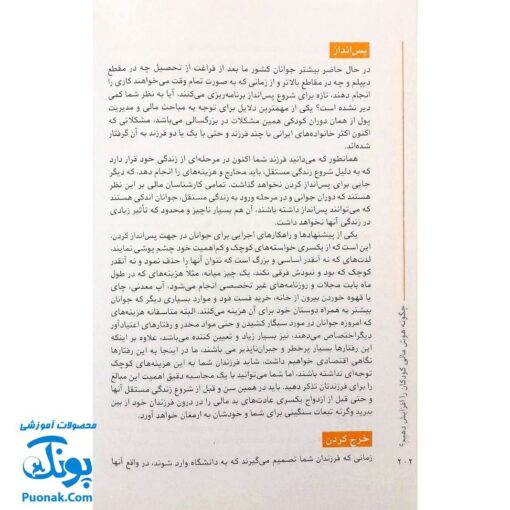 پس‌انداز
در حال حاضر بیشتر جوانان کشور ما بعد از فراغت از تحصیل چه در مقطع
دیپلم و چه در مقاطع بالاتر و از زمانی که به صورت تمام وقت می‌خواهند کاری را
انجام دهند، تازه برای شروع پس‌انداز برنامه‌ریزی می‌کنند، آیا به نظر شما کمی
دیر نشده است؟ یکی از مهمترین دلایل برای توجه به مباحث مالی و مدیریت
پول از همان دوران کودکی همین مشکلات در بزرگسالی می‌باشد، مشکلاتی که
اکنون اکثر خانواده‌های ایرانی با چند فرزند و حتی با یک یا دو فرزند به آن گرفتار
شده‌اند.
همانطور که می‌دانید فرزند شما اکنون در مرحله‌ای از زندگی خود قرار دارد
که به دلیل شروع زندگی مستقل، باید مخارج و هزینه‌های را انجام دهد، که دیگر
جایی برای پس‌انداز کردن نخواهد گذاشت. تمامی کارشناسان مالی بر این نظر
هستند که دوران جوانی و در مرحله ورود به زندگی مستقل، جوانان اندکی هستند
که می‌توانند پس‌انداز داشته باشند، آن هم بسیار ناچیز و محدود که تأثیر زیادی
در زندگی آنها نخواهد داشت.
یکی از پیشنهادها و راهکارهای اجرایی برای جوانان در جهت پس‌انداز کردن،
این است که از یکسری خواسته‌های کوچک و کم‌اهمیت خود چشم پوشی نمایند،
لذت‌های که نه آنقدر اساسی و بزرگ است که نتوان آنها را حذف نمود و نه آنقدر
کوچک که بود و نبودش فرقی نکند، یک چیز میانه، مثلا هزینه‌های که در طول
ماه بابت مجلات و روزنامه‌های غیر تخصصی انجام می‌شود، آب معدنی، چای
یا قهوه خوردن بیرون از خانه، خرید فست فود و موارد بسیاری دیگر که جوانان
بیشتر به همراه دوستان خود برای آن هزینه می‌کنند. البته متاسفانه هزینه‌های
که امروزه جوانان در مورد سیگار کشیدن و حتی مواد مخدر و رفتارهای اعتیادآور
دیگراختصاص می‌دهند، نیز بسیار زیاد و تعیین کننده می‌باشد، علاوه بر اینکه
این رفتارها بسیار پرخطر و جبران‌ناپذیر می باشند، ما در اینجا به این رفتارها
نگاهی اقتصادی خواهیم داشت، شاید فرزندان شما به این هزینه‌های کوچک
توجه‌ای نداشته باشند، اما شما می‌توانید با یک محاسبه دقیق اهمیت این مبالغ
را برای فرزندتان تذکر دهید. باید در همین سن و قبل از شروع زندگی مستقل آنها
و حتی قبل از ازدواج یکسری عادت‌های بد مالی را در درون فرزندان خود از بین
ببرید وگرنه تبعات سنگینی برای شما و خودشان به ارمغان خواهد آورد.
خرج کردن
زمانی که فرزندان شما تصمیم می‌گیرند که به دانشگاه وارد شوند، در واقع آنها
چگونه هوش مالی کودکان را افزایش دهیم؟
۲۰۲
محصولات آموزشی
پونک
Puonak.Com